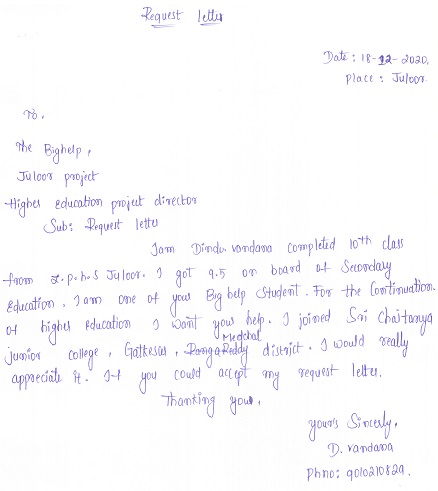 Request letter
Date : 18-12-2020.
place : Juloor.
To,
The Bighelp,
Juloor project
Higher education project director
Sub: Request letter
I am Dindu.vandana completed 10th class
from z.p.h.s Juloor. I got 9.5 on board of Secondary
Education. I am one of your Big help student. For the Continuation.
of higher education I want your help. I joined Sri Chaitanya
Medchal
junior college, Gatkesar, RangaReddy district. I would really
appreciate it. If you could accept my request letter.
Thanking you,
your's Sincerly,
D. vandana
Phno: 9010210829.